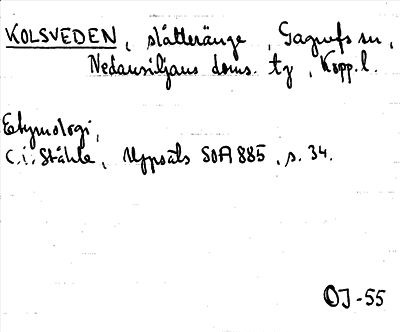 KOLSVEDEN, slåtteränge, Gagnefs sn,
Nedansiljans doms. tg, Kopp.l.
Etymologi,
C.i. Ståhle, Uppsats SOA 885, s. 34.
OJ-55